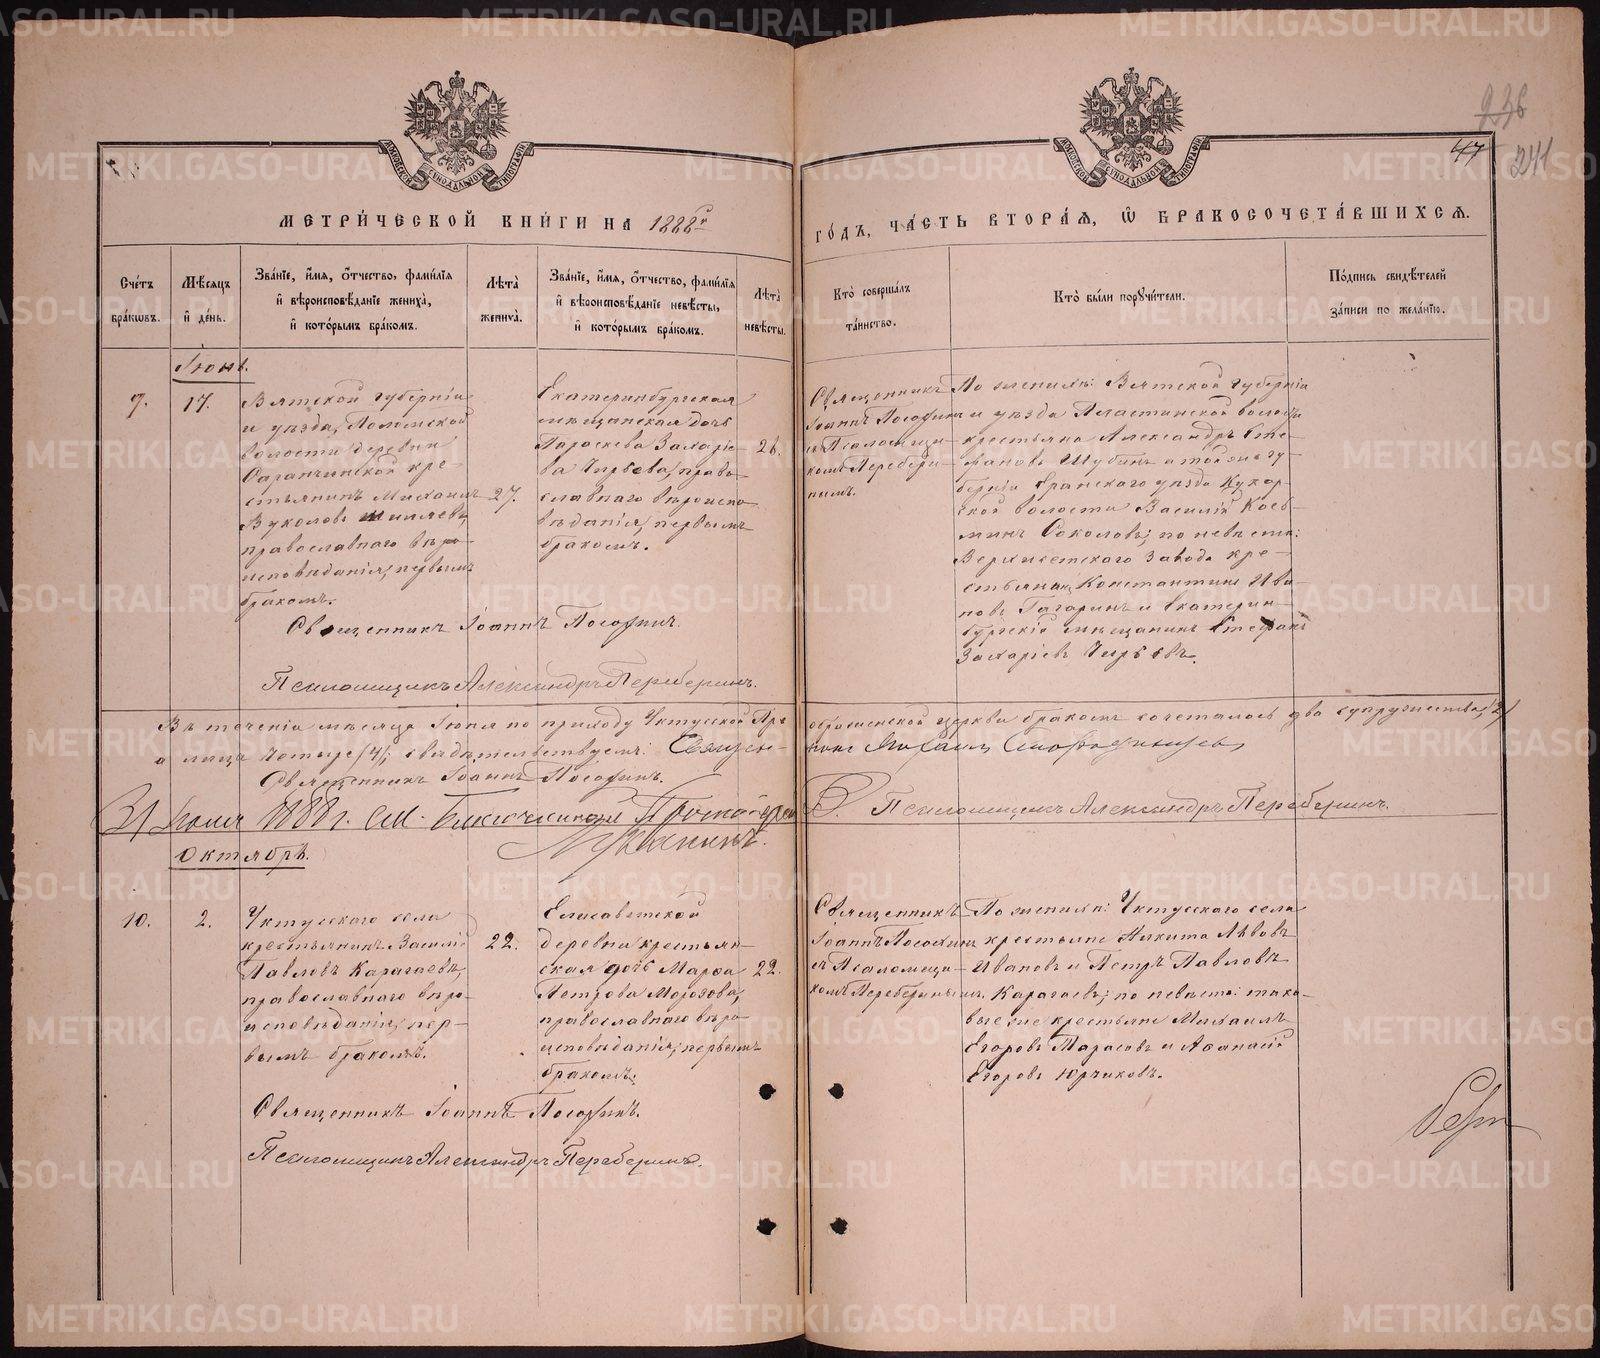 236
47
241
МОСКОВСКОЙ СѴНОДАЛЬНОЙ ТИПОГРАФІИ
МОСКОВСКОЙ СѴНОДАЛЬНОЙ ТИПОГРАФІИ
МЕТРИ́ЧЕСКОЙ КНИ́ГИ НА 1888й
ГО́ДЪ, ЧА́СТЬ ВТОРА́Я, Ѿ БРАКОСОЧЕТА́ВШИХСЯ.
Сче́тъ бра́кѡвъ.
Мѣ́сяцъ и҆ де́нь.
Зва́нїе, и҆́мя, ѻ҆́тчество, фами́лїя и҆ вѣроисповѣ́данїе жениха̀, и҆ кото́рымъ бра́комъ.
Лѣ́та жениха̀.
Зва́нїе, и҆́мя, ѻ҆́тчество, фами́лїя и҆ вѣроисповѣ́данїе невѣ́сты, и҆ кото́рымъ бра́комъ.
Лѣ́та невѣ́сты.
Кто̀ соверша́лъ та́инство.
Кто̀ бы́ли порꙋчи́тели.
По́дпись свидѣ́телей за́писи по жела́нїю.
Іюнь.
7.
17.
Вятской губерніи
и уѣзда, Поломской
волости деревни
Саранчинской кре-
стьянинъ Михаилъ
Вуколовъ Шиляевъ,
православнаго вѣро-
исповѣданія, первымъ
бракомъ.
27.
Екатеринбургская
мѣщанская дочь
Параскева Захаріе-
ва Чирьева, право-
славнаго вѣроиспо-
вѣданія, первымъ
бракомъ.
26.
Священникъ
Іоаннъ Посохинъ
съ Псаломщи-
комъ Перебери-
нымъ.
По женихѣ: Вятской губерніи
и уѣзда волости
крестьяне Александръ Сте-
фановъ Шубинъ а той же гу-
берніи Яранскаго уѣзда Кукар-
ской волости Василій Козь-
минъ Соколовъ; по невѣстѣ:
Верхисетского завода кре-
стьянинъ Константинъ Ива-
новъ Гагаринъ и Екатерин-
бургскій мѣщанинъ Стефанъ
Захаріевъ Чирьевъ.
Священникъ Іоаннъ Посохинъ.
Псаломщикъ Александръ Переберинъ.
Въ теченіи мѣсяца Іюня по приходу Уктусской Преображенской церкви бракомъ сочеталось два супружества,
а лицъ четыре /4/; свидѣтельствуемъ: Священникъ Михаилъ
Священникъ Іоаннъ Посохинъ.
Псаломщикъ Александръ Переберинъ.
31 1888 г. См. Благочинный Протоіерей
Октябрь.
10.
2.
Уктусского села
крестьянинъ Василій
Павловъ Карагаевъ,
православнаго вѣро-
исповѣданія, пер-
вымъ бракомъ.
22.
Елисаветской
деревни крестьян-
ская дочь Марѳа
Петрова Морозова,
православнаго вѣро-
исповѣданія, первымъ
бракомъ.
22.
Священникъ
Іоаннъ Посохинъ
съ Псаломщи-
комъ Переберинымъ.
По женихѣ: Уктусского села
крестьяне Никита Львовъ
Ивановъ и Петръ Павловъ
Карагаевъ; по невѣстѣ: тако-
вые же крестьяне Михаилъ
Егоровъ Тарасовъ и Аѳанасій
Егоровъ Юрчиковъ.
Священникъ Іоаннъ Посохинъ.
Псаломщикъ Александръ Переберинъ.
METRIKI.GASO-URAL.RU